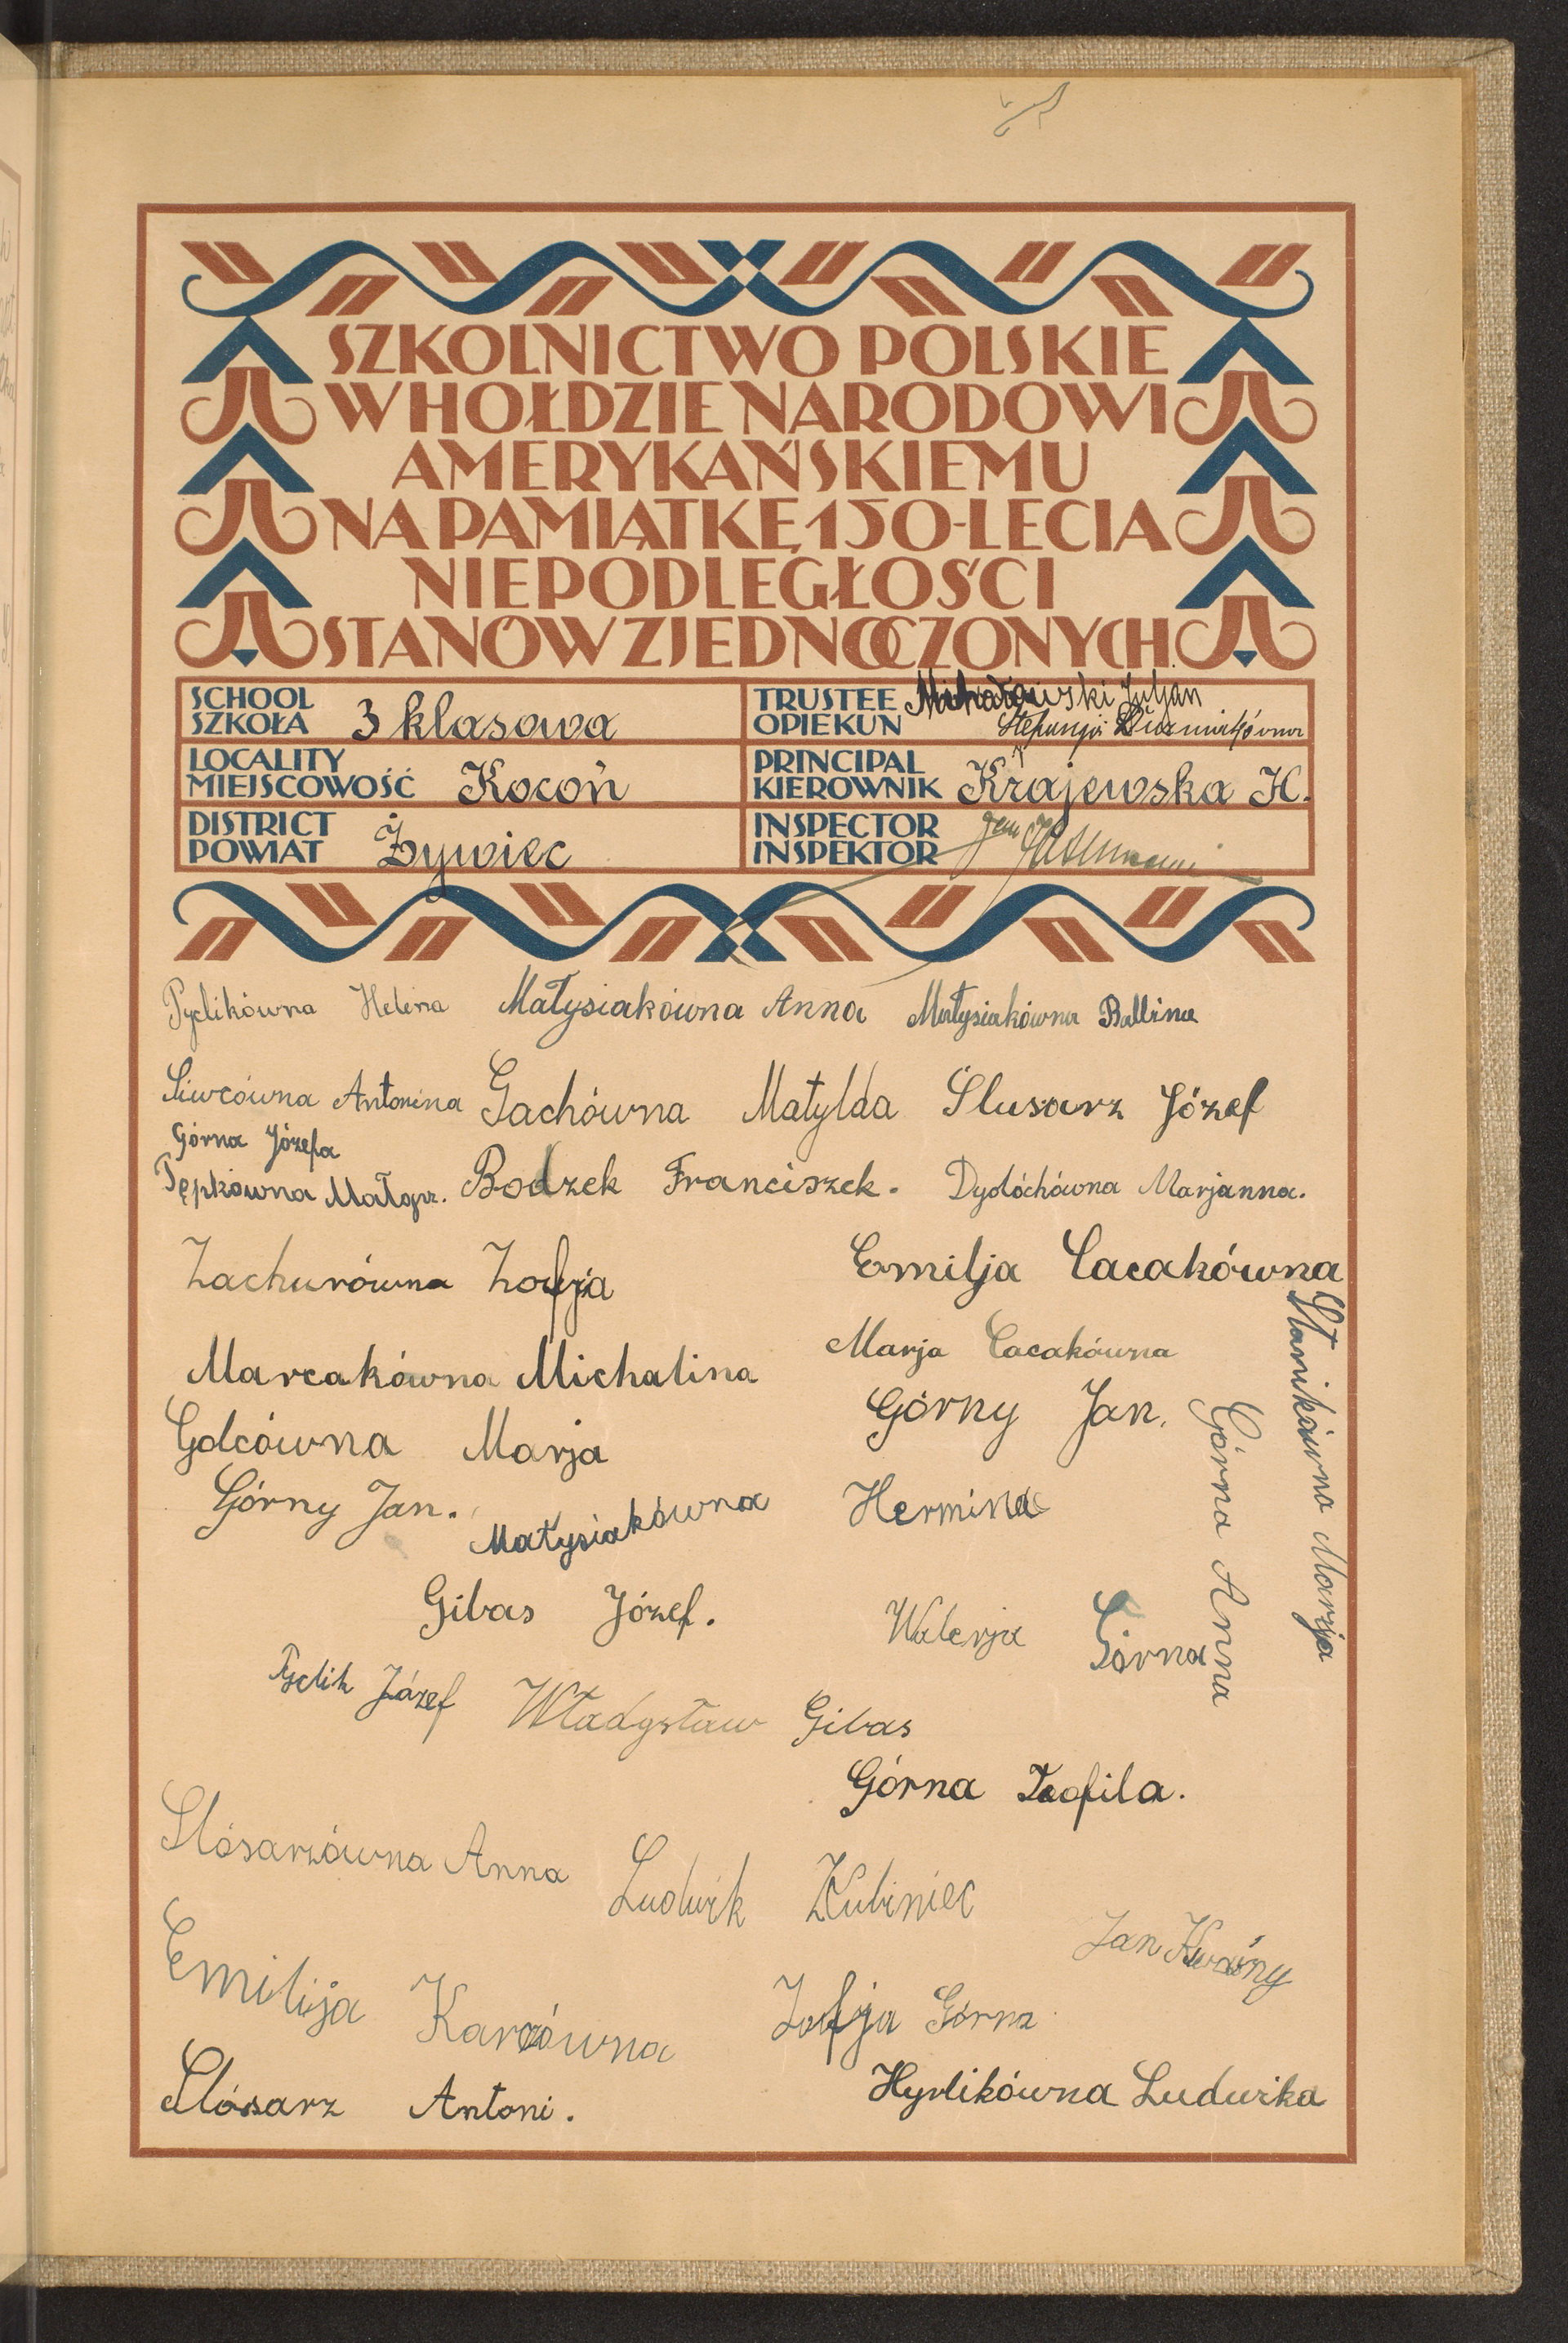 SZKOLNICTWO POLSKIE
W HOŁDZIE NARODOWI
AMERYKAŃSKIEMU
NA PAMIĄTKĘ 150-LECIA
NIEPODLEGŁOŚCI
STANÓW ZJEDNOCZONYCH
SCHOOL
SZKOŁA 3 klasowa
TRUSTEE
OPIEKUN Juljan
LOCALITY
MIEJSCOWOŚĆ Kocoń
PRINCIPAL
KIEROWNIK Krajewska H.
DISTRICT
POWIAT Żywiec
INSPECTOR
INSPEKTOR
Pyclikówna Helena Małysiakówna Anna Małysiakówna Balbina
Siwcówna Antonina Gachówna Matylda Ślusarz Józef
Górna Józefa
Pępkówna Małgorz. Bodzek Franciszek. Dydóchówna Marjanna.
Zachurówna Zofja Emilja Cacakówna
Stanikówna Marija
Marcakówna Michalina Marja Cacakówna
Golcówna Marja Górny Jan.
Górna Anna
Górny Jan. Małysiakówna Hermina
Gibas Józef. Walerja Górna
Pyclik Józef Władysław Gibas
Górna Teofila.
Slósarzówna Anna Ludwik Kubiniec
Jan Kwaśny
Emilija Karcówna Zofja Górna
Slósarz Antoni. Hyrlikówna Ludwika